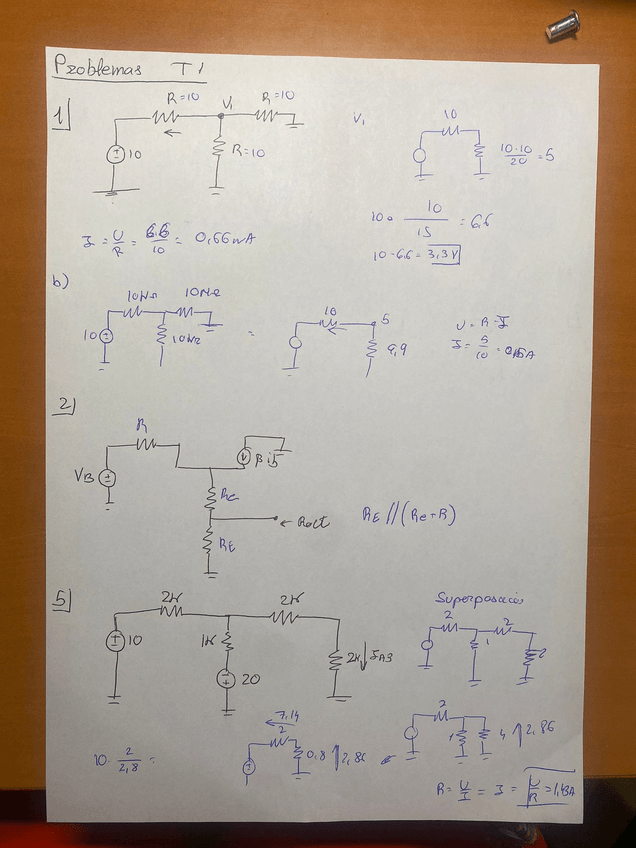 Problemas T1
1)
R=10 V1 R=10
10
R=10
V1
10
10·10/20 = 5
10 · 10/15 = 6,6
10-6,6 = 3,3V
I = U/R = 6,6/10 = 0,66mA
b)
10kΩ 10kΩ
10
10kΩ
=
10 5
9,9
U = R·I
I = 5/10 =
2)
R
VB
β ib
Re
← Rout
RE
RE//(Re+R)
5)
2k 2k
10
1k
20
2k ↓
Superposació
2 2
1
2
2
4 ↑2,86
7,14
←
2
0,8 ↑2,86
10 · 2/2,8 =
R = U/I = I = U/R = 1,43A